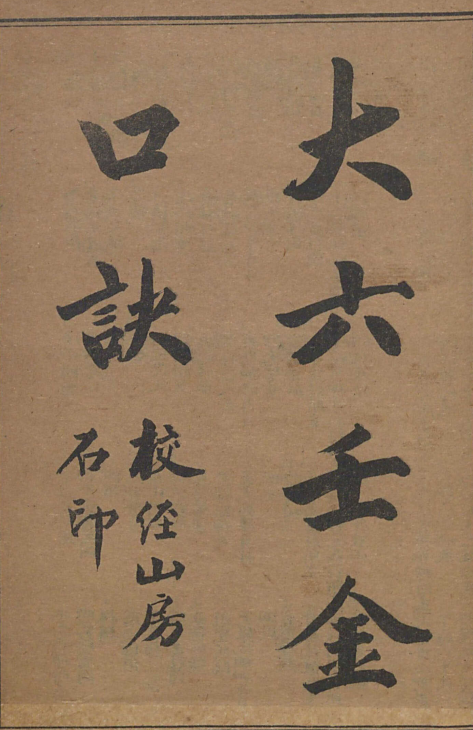 大六壬金
口訣
校经山房
石印